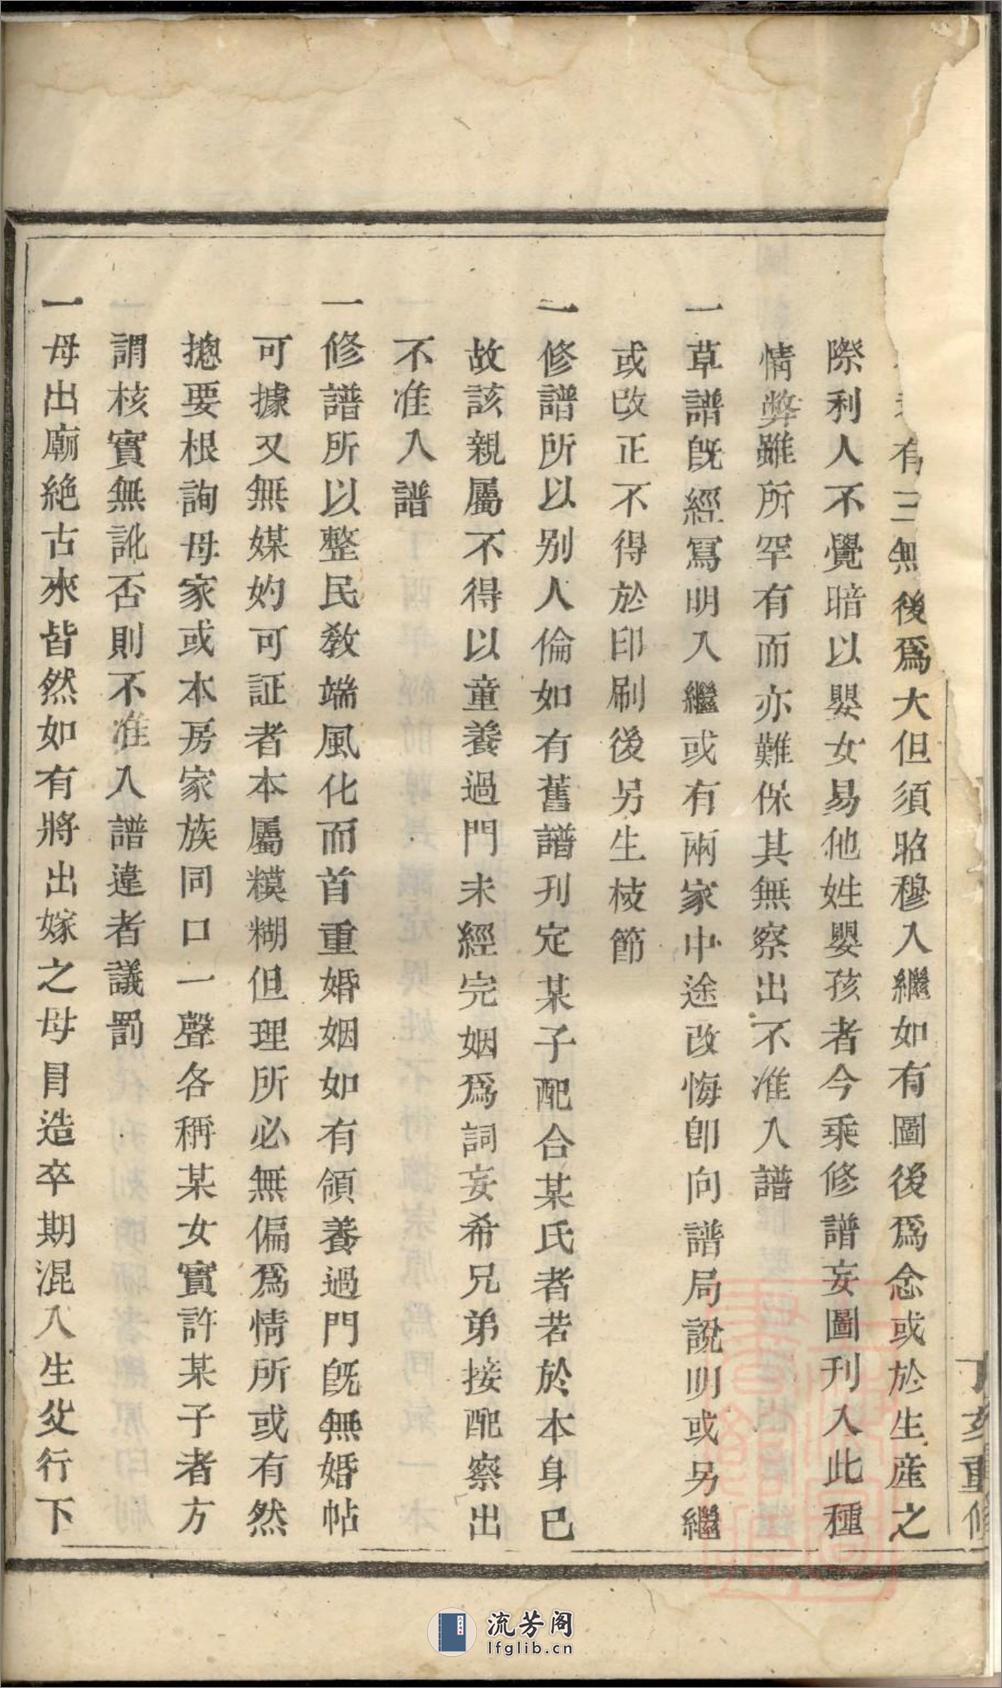 有三無後爲大但須昭穆入繼如有圖後爲念或於生産之
際利人不覺暗以嬰女易他姓嬰孩者今乘修譜妄圖刊入此種
情弊雖所罕有而亦難保其無察出不准入譜
一草譜旣經寫明入繼或有兩家中途改悔卽向譜局說明或另繼
或改正不得於印刷後另生枝節
一修譜所以别人倫如有舊譜刊定某子配合某氏者若於本身已
故該親屬不得以童養過門未經完姻爲詞妄希兄弟接配察出
不准入譜
一修譜所以整民敎端風化而首重婚姻如有領養過門旣無婚帖
可據又無媒妁可証者本屬糢糊但理所必無偏爲情所或有然
摠要根詢母家或本房家族同口一聲各稱某女實許某子者方
謂核實無訛否則不准入譜違者議罰
一母出廟絶古來皆然如有將出嫁之母目造卒期混入生父行下
重修
流芳阁
lfglib.cn